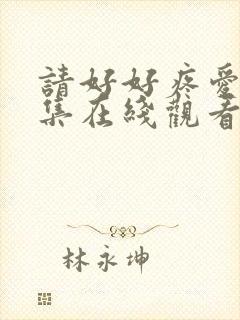 請好好疼愛
集在綫觀看
林永坤